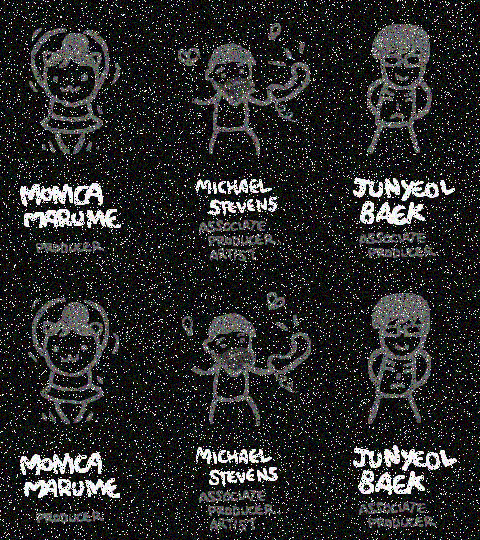 MONICA
MARUME
PRODUCER
MICHAEL
STEVENS
ASSOCIATE
PRODUCER
ARTIST
JUNYEOL
BAEK
ASSOCIATE
PRODUCER
MONICA
MARUME
PRODUCER
MICHAEL
STEVENS
ASSOCIATE
PRODUCER
ARTIST
JUNYEOL
BAEK
ASSOCIATE
PRODUCER